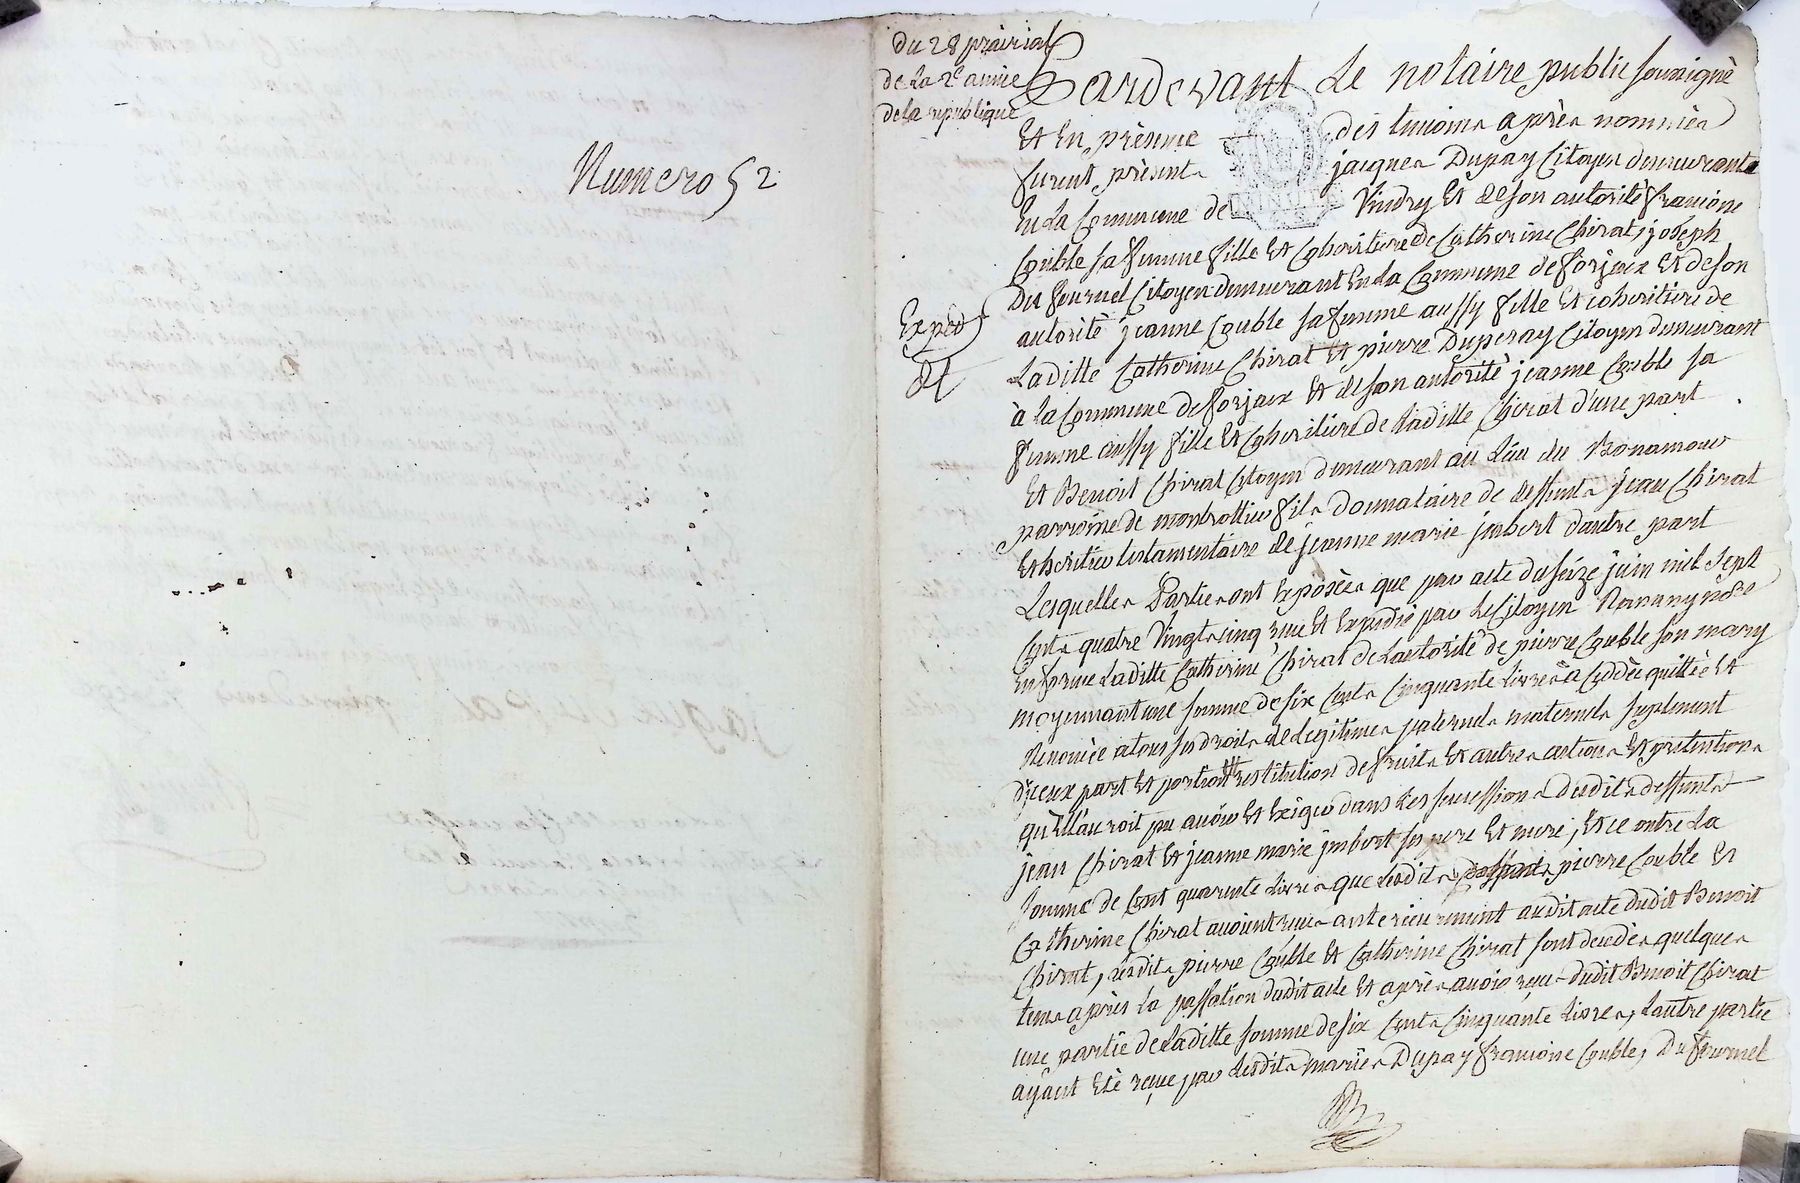 Numero 52
du 28 prairial
de La 2e année
de la republique
Expéd
Pardevant Le notaire public soussigné
Et En présence des temoins après nommés
furent présents jacques Dupay Citoyen demeurants
En La Commune de Vindry Et de son autorité françoise
Couble sa femme fille Et Coheritiere de Catherine Chirat, joseph
Du fournel Citoyen demeurant En La Commune de forjaux Et de son
autorité jeanne Couble sa femme aussy fille Et coheritiere de
Laditte Catherine Chirat Et pierre Duperay Citoyen demeurant
à la Commune de forjaux Et de son autorité jeanne Couble sa
femme aussy fille Et Coheritiere de Laditte Chirat d'une part
Et Benoit Chirat Citoyen demeurant au Lieu du Bonamour
parroisse de montrottier fils donnataire de deffunts jean Chirat
Et heritier testamentaire de jeanne marie jmbert d'autre part
Lesquelles Parties ont Exposées que par acte du seize juin mil sept
Cents quatre Vingts cinq reçu Et Expedié par Le Citoyen Ronanny nore
En forme Laditte Catherine Chirat de Lautorité de pierre Couble son mary
moyennant une somme de six Cents Cinquante Livres à Ceddée quittée Et
Renoncée a tous ses droits de Legitimes paternels maternels suplement
d'jceux part Et portion restitution de fruits Et autres actions Et pretentions
qu'Ell'auroit pu avoir Et Exiger dans Les successions desdits deffunts
jean Chirat Et jeanne marie jmbert ses pere Et mere, Et ce outre La
somme de Cent quarente Livres que Lesdits pierre Couble Et
Catherine Chirat avoient reçue anterieurement audit acte dudit Benoit
Chirat, Lesdits pierre Couble Et Catherine Chirat sont decedés quelques
tems après La passation dudit acte Et après avoir reçu dudit Benoit Chirat
une partie de Laditte somme de six Cents Cinquante Livres, Lautre partie
ayant Eté reçue par Lesdits mariés Dupay françoise Couble, Du fournel